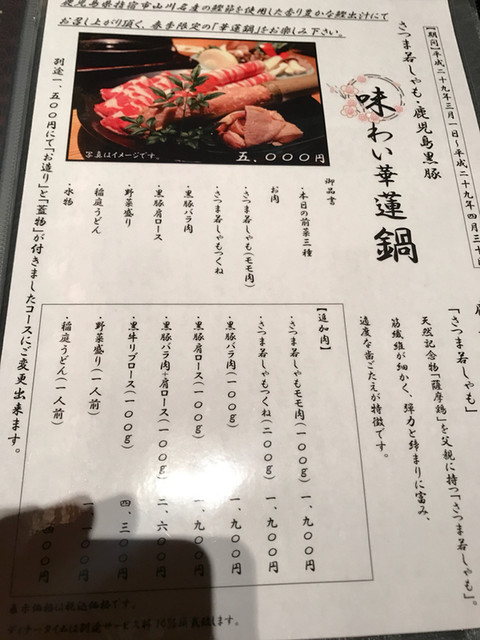 【期間】平成二十九年三月一日～平成二十九年四月三十日
さつま若しゃも・鹿児島黒豚
味わい華蓮鍋
鹿児島県指宿市山川名産の鰹節を使用した香り豊かな鰹出汁にて
お召し上がり頂く、春季限定の「華蓮鍋」をお楽しみ下さい。
写真はイメージです。
五,〇〇〇円
御品書
・本日の前菜三種
お肉
・さつま若しゃも(モモ肉)
・さつま若しゃもつくね
・黒豚バラ肉
・黒豚肩ロース
・野菜盛り
・稲庭うどん
・水物
別途一、五〇〇円にて「お造り」と「蓋物」が付きましたコースにご変更出来ます。
「さつま若しゃも」
天然記念物「薩摩鶏」を父親に持つ「さつま若しゃも」。
筋繊維が細かく、弾力と締まりに富み、
適度な歯ごたえが特徴です。
【追加肉】
・さつま若しゃもモモ肉(一〇〇g) 一、九〇〇円
・さつま若しゃもつくね(二〇〇g) 一、九〇〇円
・黒豚バラ肉(一〇〇g) 一、九〇〇円
・黒豚肩ロース(一〇〇g) 一、九〇〇円
・黒豚バラ肉+肩ロース(一〇〇g) 二、六〇〇円
・黒牛リブロース(一〇〇g) 四、三〇〇円
・野菜盛り(一人前) 一、一〇〇円
・稲庭うどん(一人前) 四〇〇円
表示価格は税込価格です。
ディナータイムは別途サービス料